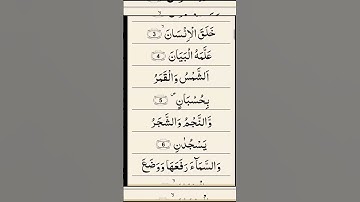 خَلَقَ الْاِنْسَانَ ۙ 3
عَلَّمَهُ الْبَيَانَ 4
اَلشَّمْسُ وَالْقَمَرُ
بِحُسْبَانٍ ۪ 5
وَّالنَّجْمُ وَالشَّجَرُ
يَسْجُدٰنِ 6
وَالسَّمَآءَ رَفَعَهَا وَوَضَعَ